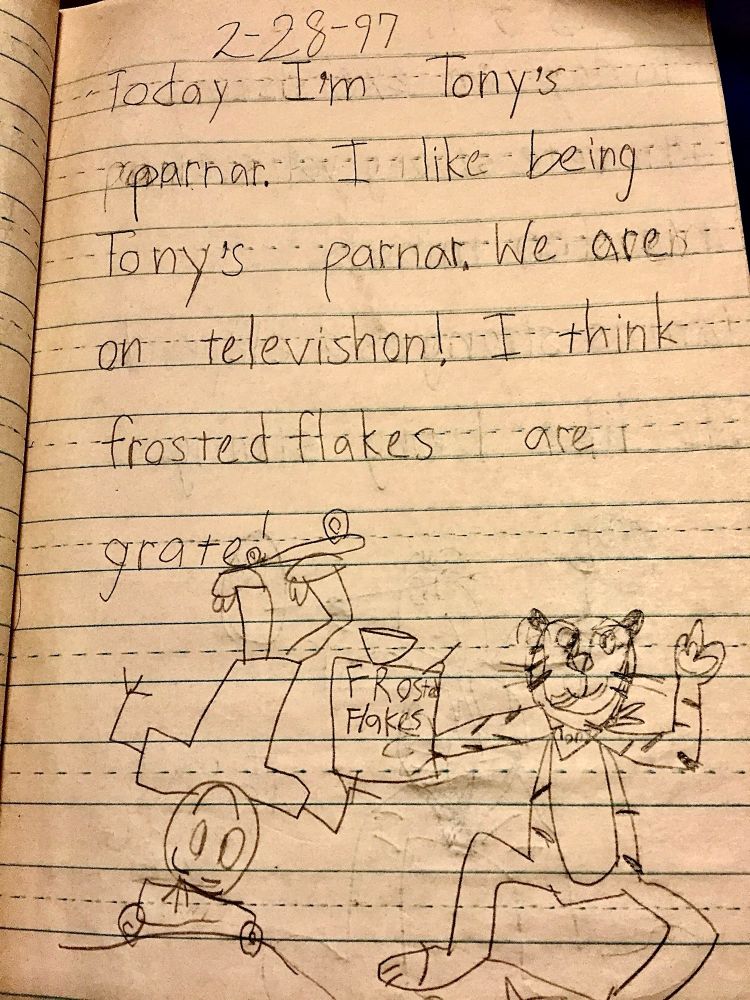 2-28-97
Today I'm Tony's
parnar. I like being
Tony's parnar. We are
on televishon! I think
frosted flakes are
grate!
FROsted
Flakes
Tony